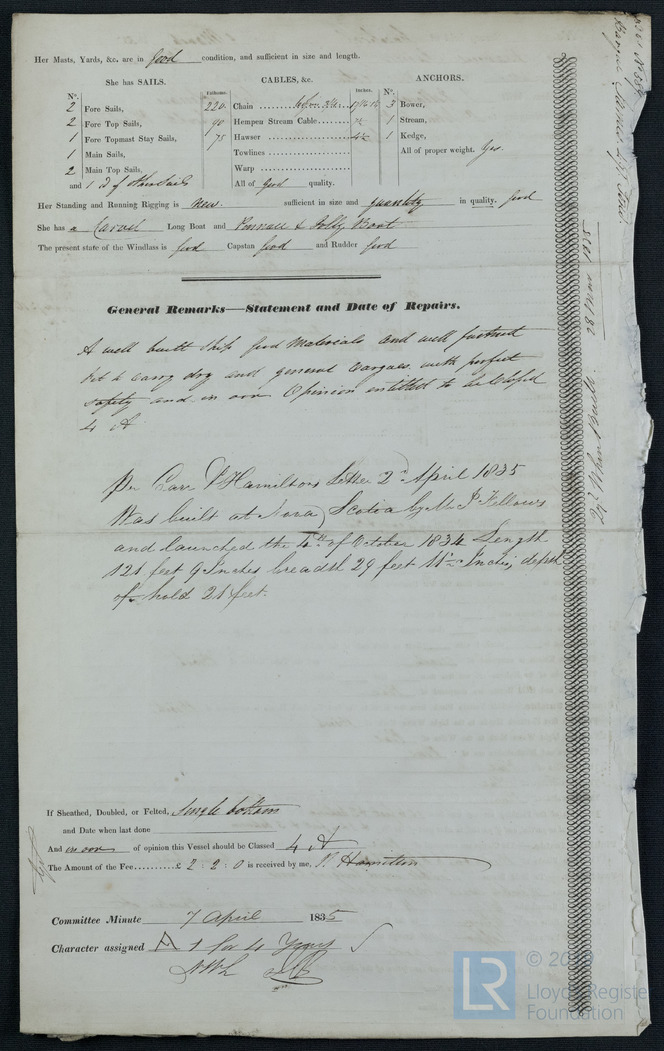 Her Masts, Yards, &c. are in good condition, and sufficient in size and length.
She has SAILS.
CABLES, &c.
ANCHORS.
N°.
Fathoms.
Inches.
N°.
2 Fore Sails,
220 Chain
3 Bower,
2 Fore Top Sails,
90 Hempen Stream Cable
1 Stream,
1 Fore Topmast Stay Sails,
75 Hawser
1 Kedge,
1 Main Sails,
Towlines
All of proper weight. Yes.
2 Main Top Sails,
Warp
and
All of good quality.
Her Standing and Running Rigging is New. sufficient in size and quantity in quality. good
She has a Carvel Long Boat and Pinnace & Jolly Boat
The present state of the Windlass is good Capstan good and Rudder good
General Remarks—Statement and Date of Repairs.
A well built Ship good Materials and well
fit to carry dry and general Cargoes with perfect
safety and in our Opinion entitled to be Classed
4 A
Hamiltons Letter 2d April 1835
Was built at Nova Scotia by Mr Fellows
and launched the 4th of October 1834 Length
121 feet 9 Inches breadth 29 feet 11 Inches, depth
of hold 21 feet.
If Sheathed, Doubled, or Felted, Single bottom
and Date when last done
And in our of opinion this Vessel should be Classed 4 A
The Amount of the Fee..........£ 2 : 2 : 0 is received by me, Hamilton
Committee Minute 7 April 1835
Character assigned A 1 for 4 Years
When Built 28 Mar 1835
LR
Lloyd's Register
Foundation